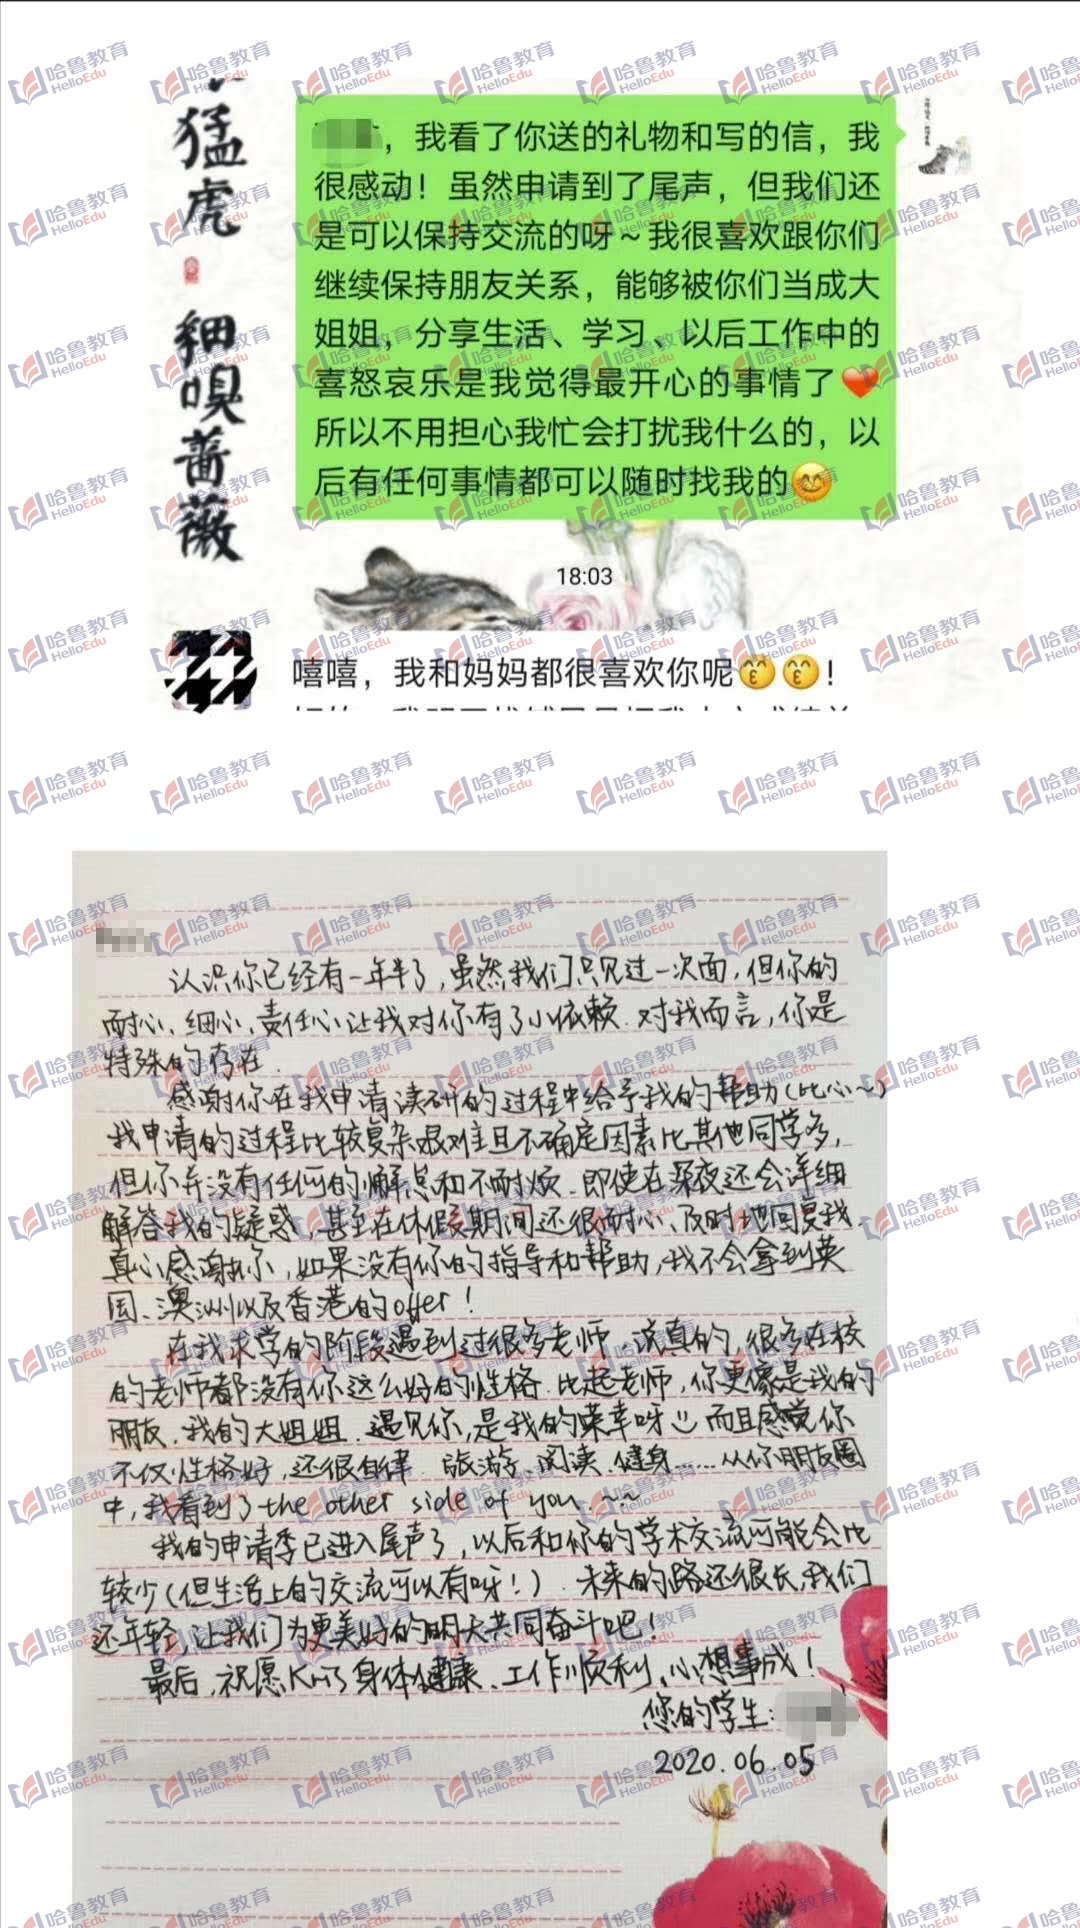 猛虎
细嗅蔷薇
，我看了你送的礼物和写的信，我
很感动！虽然申请到了尾声，但我们还
是可以保持交流的呀～我很喜欢跟你们
继续保持朋友关系，能够被你们当成大
姐姐，分享生活、学习、以后工作中的
喜怒哀乐是我觉得最开心的事情了❤
所以不用担心我忙会打扰我什么的，以
后有任何事情都可以随时找我的😊
18:03
嘻嘻，我和妈妈都很喜欢你呢😙😙！
认识你已经有一年半了，虽然我们只见过一次面，但你的
耐心、细心、责任心让我对你有了小依赖．对我而言，你是
特殊的存在．
感谢你在我申请读研的过程中给予我的帮助（比心～）
我申请的过程比较复杂艰难且不确定因素比其他同学多，
但你并没有任何的懈怠和不耐烦．即使在深夜还会详细
解答我的疑惑，甚至在休假期间还很耐心、及时地回复我．
真心感谢你，如果没有你的指导和帮助，我不会拿到英
国、澳洲以及香港的offer！
在我求学的阶段遇到过很多老师．说真的，很多在校
的老师都没有你这么好的性格．比起老师，你更像是我的
朋友．我的大姐姐．遇见你，是我的荣幸呀 而且感觉你
不仅性格好，还很自律．旅游、阅读、健身……从你朋友圈
中，我看到了the other side of you ～~
我的申请季已进入尾声了，以后和你的学术交流可能会比
较少（但生活上的交流可以有呀！）．未来的路还很长，我们
还年轻，让我们为更美好的明天共同奋斗吧！
最后，祝愿 身体健康、工作顺利、心想事成！
您的学生：
2020.06.05
哈鲁教育
HelloEdu